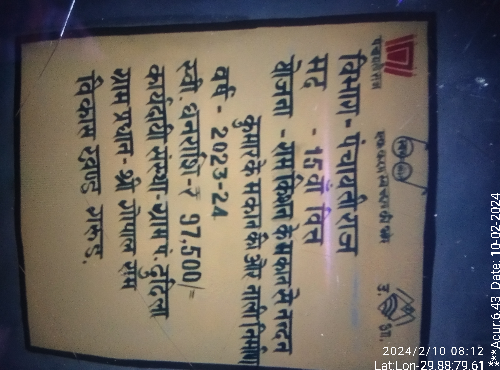 पंचायती राज
एक कदम स्वच्छता की ओर
उ. प्र.
विभाग - पंचायतीराज
मद - 15वाँ वित्त
योजना - राम किशन के मकान से नन्दन
कुमार के मकान की ओर नाली निर्माण
वर्ष - 2023-24
स्वी. धनराशि - ₹ 97,500/=
कार्यदायी संस्था - ग्राम पं. लुटिला
ग्राम प्रधान - श्री गोपाल राम
विकास खण्ड गरुड.
2024/2/10 08:12
Lat:Lon-29.88:79.61
***Acur:6.43 Date: 10-02-2024